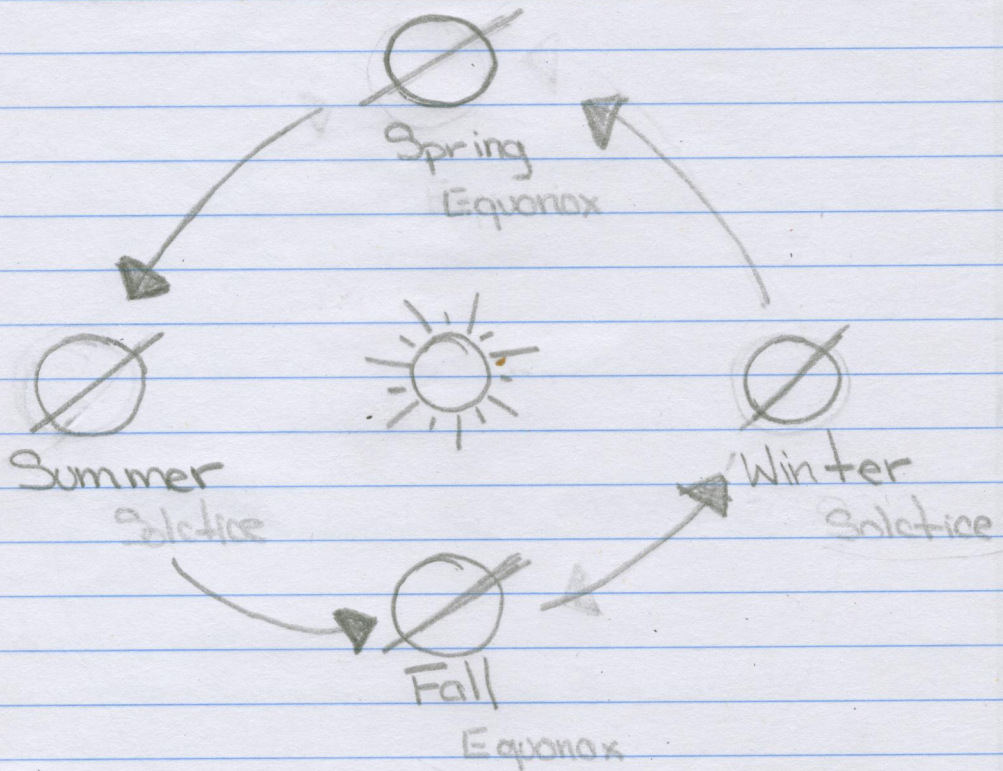 Spring
Equonox
Summer
Solctice
Winter
Solctice
Fall
Equonox